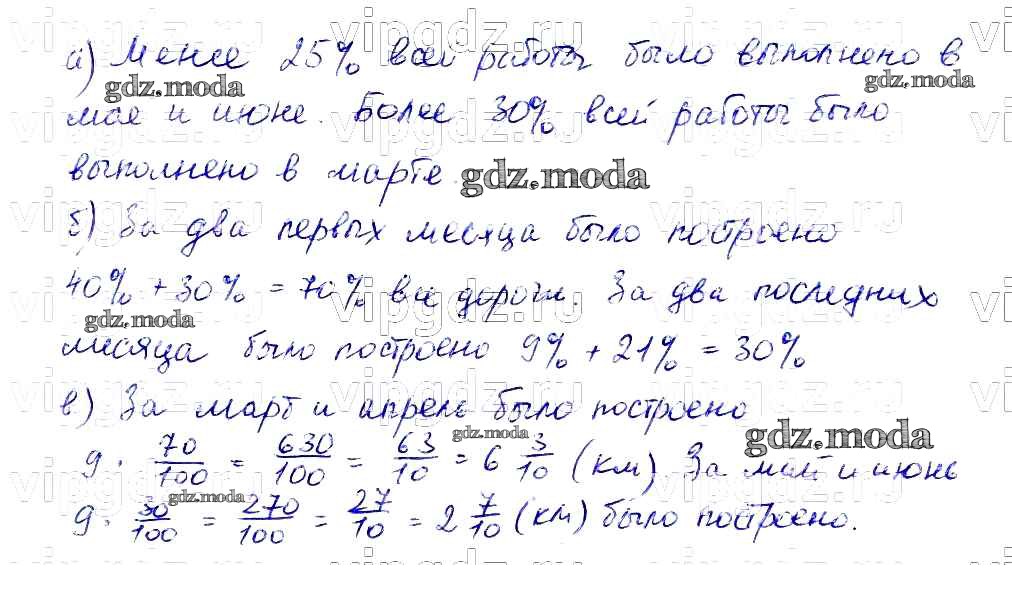 а) Менее 25% всей работы было выполнено в
мае и июне. Более 30% всей работы было
выполнено в марте.
б) За два первых месяца было построено
40% + 30% = 70% вс дороги. За два последних
месяца было построено 9% + 21% = 30%
в) За март и апрель было построено
9 · 70/100 = 630/100 = 63/10 = 6 3/10 (км) За май и июнь
9 · 30/100 = 270/100 = 27/10 = 2 7/10 (км) было построено.
gdz.moda
vipgdz.ru